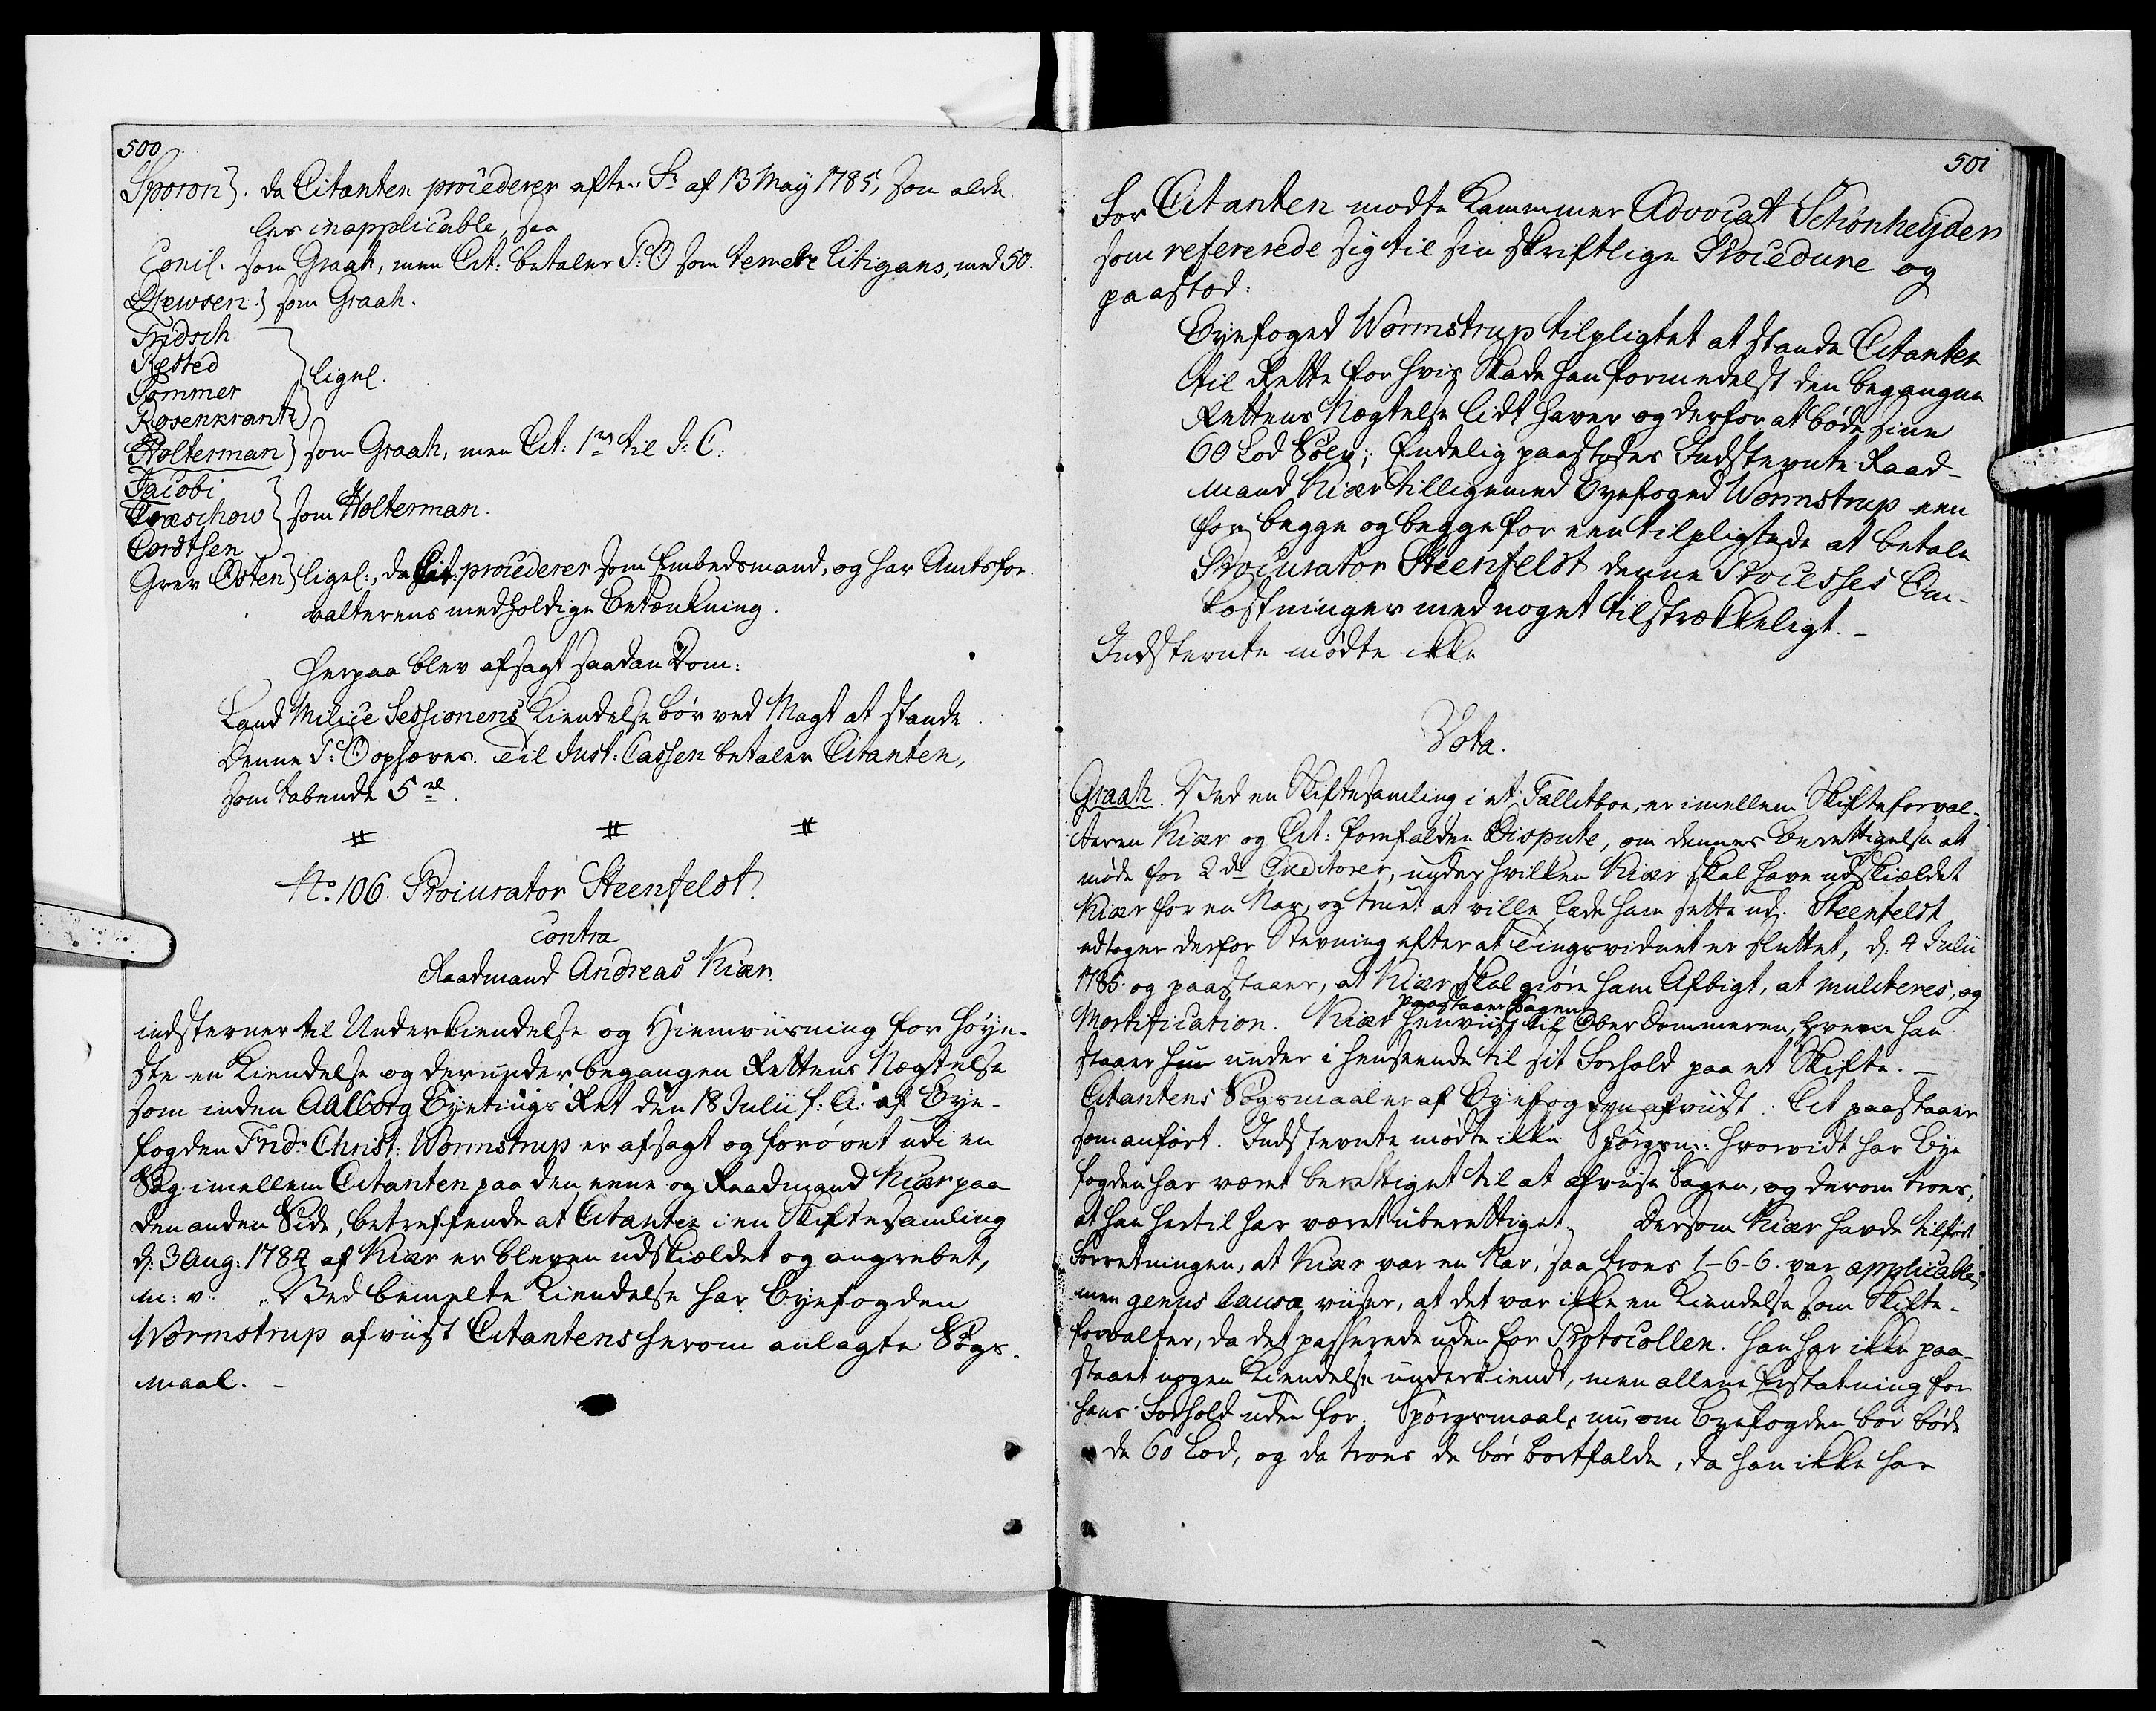 500
Sporon}. da Citanten procederer efter Fr af 13 May 1785, som alde-
les inapplicable, saa
Concil. som Graah, men Cit: betaler P:O som temere litigans, med 50.
Stewsen.} som Graah.
Fridsch
Rested
Sommer } ligel.
Rosenkrantz
Holterman} som Graah, men Cit: 1 rd til J: C:
Jacobi
Treschow } som Holterman.
Cordtsen
Grev Osten} ligel:, da Cit: procederer som Embedsmand, og har Amtsfor-
valterens medholdige Betænkning.
Herpaa blev afsagt saadan Dom:
Land Milice Sessionens Kiendelse bør ved Magt at stande.
Denne P: O ophæves. Til Just: Cassen betaler Citanten,
som tabende 5 rd.
No. 106. Procurator Steenfeldt.
contra
Raadmand Andreas Kiær.
indstevner til Underkiendelse og Hiemviisning for Høye-
ste en Kiendelse og derunder begangen Rettens Nægtelse
som inden Aalborg Byetings Ret den 18 Julii f: A: af Bye-
fogden Frid: Christ: Wormstrup er afsagt og forøvet udi en
Sag imellem Citanten paa den eene og Raadmand Kiær paa
den anden Side, betreffende at Citanten i en Skiftesamling
d: 3 Aug: 1784 af Kiær er bleven udskieldet og angrebet,
m: v: Ved bemelte Kiendelse har Byefogden
Wormstrup afviist Citantens herom anlagte Søgs-
maal. -
501
For Citanten mødte Kammer Advocat Schønheyder
som refererede sig til sin skriftlige Procedure og
paastod:
Byefoged Wormstrup tilpligtet at stande Citanten
til Rette for hvis Skade han formedelst den begangne
Rettens Nægtelse lidt haver og derfor at bøde sine
60 Lod Sølv; Endelig paastodes Indstevnte Raad-
mand Kiær tilligemed Byefoged Wormstrup een
for begge og begge for een tilpligtede at betale
Procurator Steenfeldt denne Processes Om-
kostninger med noget tilstrækkeligt. -
Indstevnte mødte ikke
Vota.
Graah. Ved en Skiftesamling i et Fallitboe, er imellem Skifteforval-
teren Kiær og Cit: forefalden Dispute, om dennes Berettigelse at
møde for 2de Creditorer, under hvilken Kiær skal have udskieldet
Kiær for en Nar, og truet at ville lade ham sette ud. Steenfeldt
udtager derfor Stevning efter at Tingsvidnet er sluttet, d: 4 Julii
1785. og paastaaer, at Kiær skal giøre ham Afbigt, at mulcteres, og
Mortification. Kiær paastaaer Sagen henviist til Ober Dommeren, hvem han
staaer hen under i henseende til sit Forhold paa et Skifte. -
Citantens Søgsmaal er af Byefogden afviist. Cit paastaaer
som anført. Indstevnte mødte ikke. Spørgsm: hvorvidt har Bye
fogden har været berettiget til at afviise Sagen, og derom troes,
at han hertil har været uberettiget. Dersom Kiær havde tilført
Forretningen, at Kiær var en Nar, saa troes 1-6-6. var applicable,
men genus causæ viiser, at det var ikke en Kiendelse som Skifte-
forvalter, da det passerede uden for Protocollen. Han har ikke paa-
staaet nogen Kiendelse underkiendt, men allene Erstatning for
hans Forhold uden for. Spørgsmaal, nu, om Byefogden bør bøde
de 60 Lod, og da troes de bør bortfalde, da han ikke har